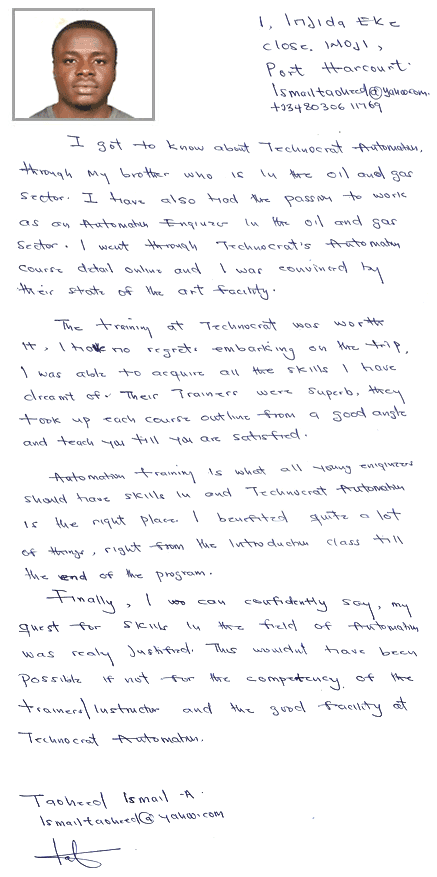 1, Injida Eke
close. Woji,
Port Harcourt.
Ismailtaoheed@yahoo.com
+2348030611769
I got to know about Technocrat Automation.
through my brother who is in the oil and gas
sector. I have also had the passion to work
as an Automation Engineer in the oil and gas
sector. I went through Technocrat's Automation
course detail online and I was convinced by
their state of the art facility.
The training at Technocrat was worth
it, I have no regrets embarking on the trip,
I was able to acquire all the skills I have
dreamt of. Their Trainers were superb, they
took up each course outline from a good angle
and teach you till you are satisfied.
Automation training is what all young engineers
should have skills in and Technocrat Automation
is the right place. I benefited quite a lot
of things, right from the Introduction class till
the end of the program.
Finally, I can confidently say, my
quest for skills in the field of Automation
was realy Justified. This wouldnt have been
possible if not for the competency of the
trainers/Instructor and the good facility at
Technocrat Automation.
Taoheed Ismail .A.
Ismailtaoheed@yahoo.com